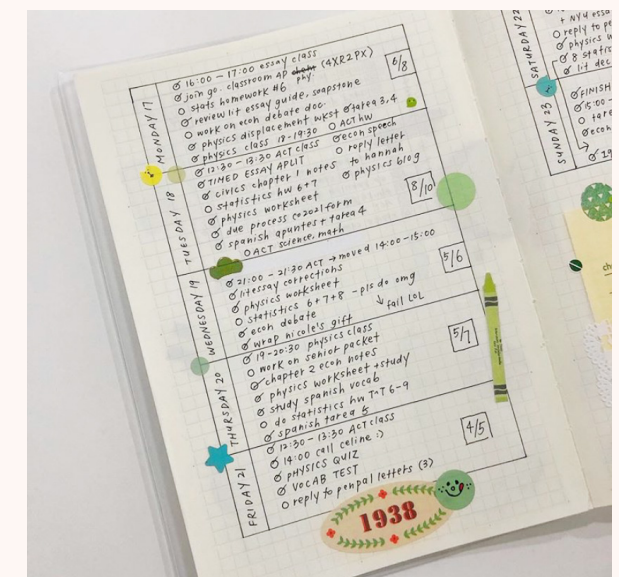 MONDAY 17
16:00 - 17:00 essay class
join go. classroom AP chem phy. (4XR2PX)
stats homework #6
review lit essay guide, soapstone
work on econ debate doc.
physics displacement wkst tarea 3,4
physics class 18-19:30 ACT hw
6/8
TUESDAY 18
12:30 - 13:30 ACT class econ speech
TIMED ESSAY APLIT reply letter
civics chapter 1 notes to hannah
statistics hw 6+7 physics blog
physics worksheet
due process co2021 form
spanish apuntes + tarea 4
ACT science, math
8/10
WEDNESDAY 19
21:00 - 21:30 ACT → moved 14:00-15:00
litessay corrections
physics worksheet
statistics 6+7+8 - pls do omg
econ debate ↓ fail LOL
wrap nicole's gift
5/6
THURSDAY 20
19-20:30 physics class
work on senior packet
chapter 2 econ notes
physics worksheet + study
study spanish vocab
do statistics hw T^T 6-9
spanish tarea 5
5/7
FRIDAY 21
12:30 - 13:30 ACT class
14:00 call celine :)
PHYSICS QUIZ
VOCAB TEST
reply to penpal letters (3)
4/5
1938
SATURDAY 22
+ NYU essa
reply to pe
physics w
8 statis
lit dec
SUNDAY 23
FINISH
15:00 -
tare
econ
19
ch